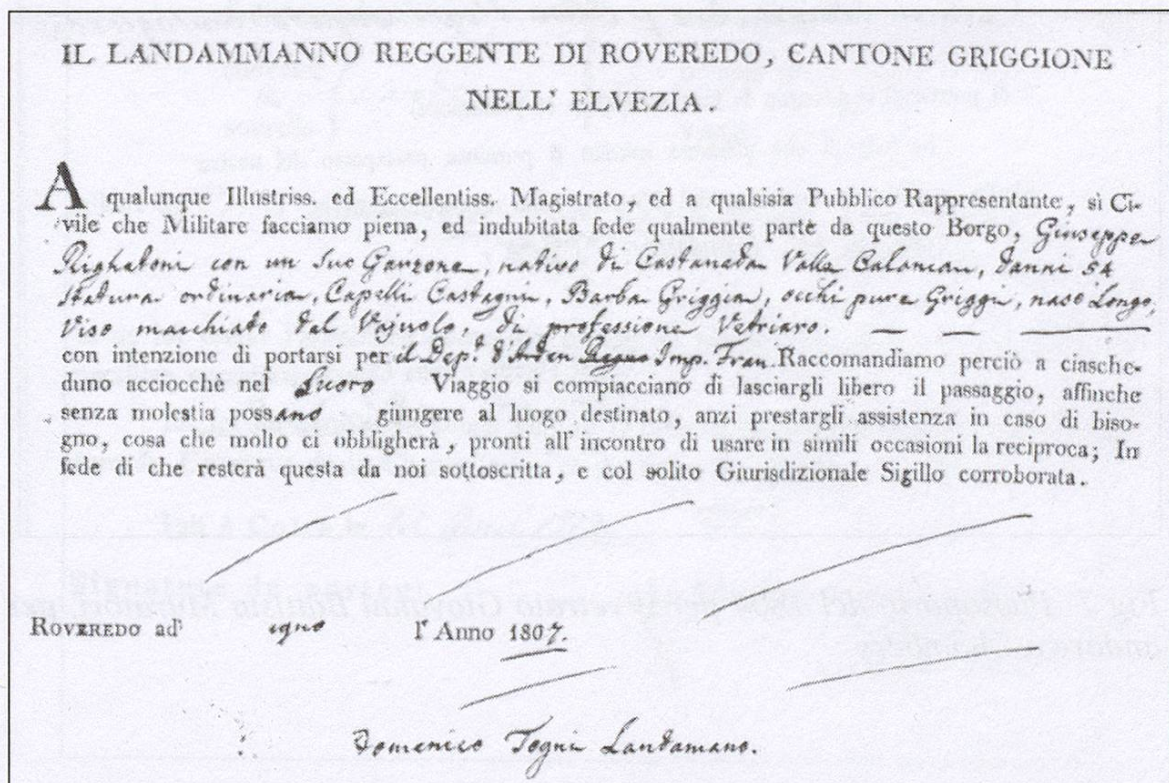 IL LANDAMMANNO REGGENTE DI ROVEREDO, CANTONE GRIGGIONE
NELL' ELVEZIA.
A qualunque Illustriss. ed Eccellentiss. Magistrato, ed a qualsisia Pubblico Rappresentante, sì Ci-
vile che Militare facciamo piena, ed indubitata fede qualmente parte da questo Borgo, Giuseppe
Righetoni con un suo Garzone, nativo di Castaneda Valle Calanca, d'anni 54
statura ordinaria, Capelli Castagni, Barba Griggia, occhi pure Griggi, naso Longo,
Viso macchiato dal Vajuolo, di professione Vetriaro.
con intenzione di portarsi per il Dep.t Imp. Fran. Raccomandiamo perciò a ciasche-
duno acciocchè nel Viaggio si compiacciano di lasciargli libero il passaggio, affinche
senza molestia possano giungere al luogo destinato, anzi prestargli assistenza in caso di biso-
gno, cosa che molto ci obbligherà, pronti all' incontro di usare in simili occasioni la reciproca; In
fede di che resterà questa da noi sottoscritta, e col solito Giurisdizionale Sigillo corroborata.
ROVEREDO ad' l' Anno 1807.
Domenico Togni Landamano.